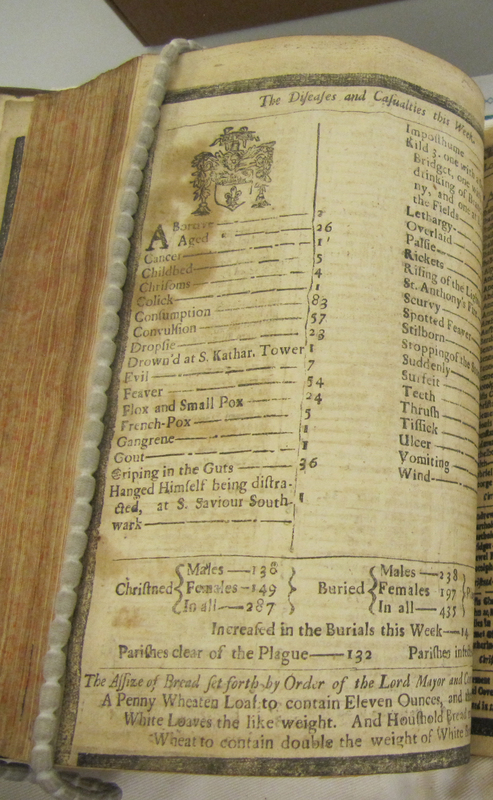 The Diſeaſes and Caſualties this Week.
ABortive 2
Aged 26
Cancer 1
Childbed 5
Chriſoms 4
Colick 1
Conſumption 83
Convulſion 57
Dropſie 23
Drown'd at S. Kathar. Tower 1
Evil 7
Feaver 54
Flox and Small Pox 24
French-Pox 5
Gangrene 1
Gout 1
Griping in the Guts 36
Hanged Himſelf being diſtra-
cted, at S. Saviour South- 1
wark
Impoſthume
Kild 3. one with
Bridget, one
drinking of
ny, and one
the Fields
Lethargy
Overlaid
Palſie
Rickets
Riſing of the
St. Anthony's
Scurvy
Spotted Feaver
Stilborn
Stopping of the
Suddenly
Surfeit
Teeth
Thruſh
Tiſſick
Ulcer
Vomiting
Wind
Chriſtned { Males 138 Females 149 In all 287 } Buried { Males 238 Females 197 In all 435 }
Increaſed in the Burials this Week
Pariſhes clear of the Plague 132 Pariſhes
The Aſſize of Bread ſet forth by Order of the Lord Mayor and
A Penny Wheaten Loaf to contain Eleven Ounces, and
White Loaves the like weight. And Houſhold Bread
Wheat to contain double the weight of White